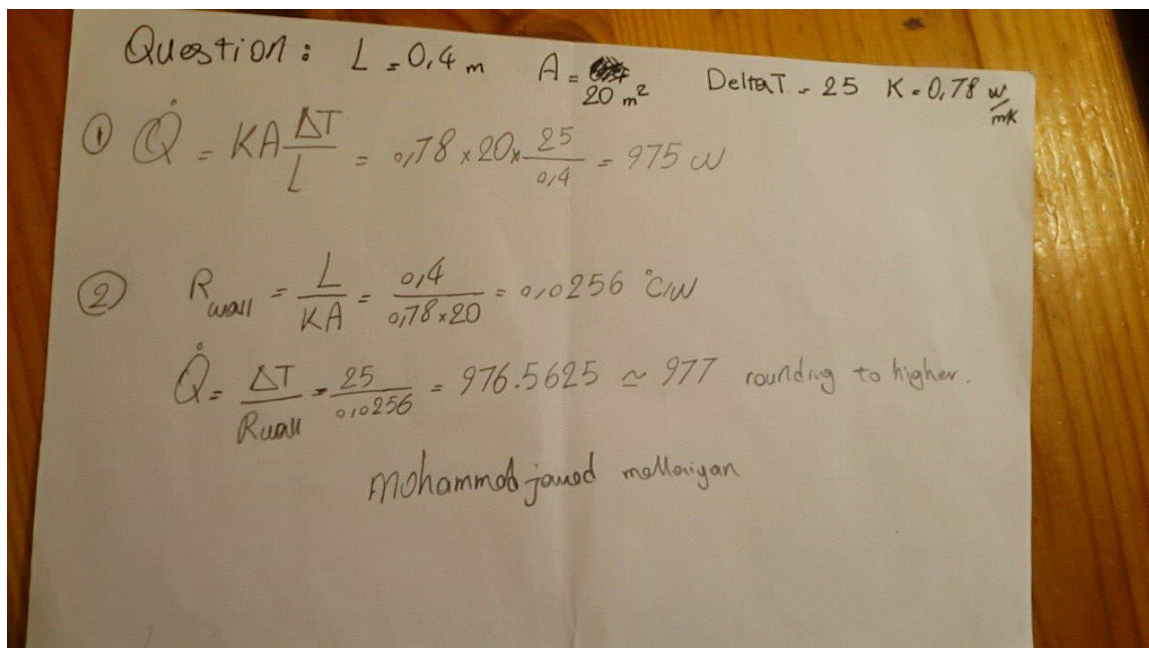 Question : L = 0,4 m A = 20 m² DeltaT = 25 K = 0,78 w/mK
① Q̇ = KA ΔT/L = 0,78 × 20 × 25/0,4 = 975 W
② R wall = L/KA = 0,4/0,78×20 = 0,0256 °C/W
Q̇ = ΔT/Rwall = 25/0,0256 = 976.5625 ≃ 977 rounding to higher.